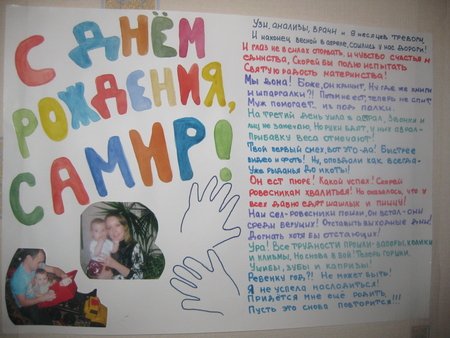 С ДНЁМ
РОЖДЕНИЯ,
САМИР!
УЗИ, АНАЛИЗЫ, ВРАЧИ И 9 МЕСЯЦЕВ ТРЕВОГИ,
И НАКОНЕЦ ВЕСНОЙ В АПРЕЛЕ, СОШЛИСЬ У НАС ДОРОГИ!
И ГЛАЗ НЕ В СИЛАХ ОТОРВАТЬ, И ЧУВСТВО СЧАСТЬЯ И
ЕДИНСТВА, СКОРЕЙ БЫ ПОЛНО ИСПЫТАТЬ
СВЯТУЮ РАДОСТЬ МАТЕРИНСТВА!
МЫ ДОМА! БОЖЕ, ОН КРИЧИТ! НУ ГДЕ ЖЕ КНИГИ
И ШПАРГАЛКИ?! ПОТОМ НЕ ЕСТ, ТЕПЕРЬ НЕ СПИТ,
МУЖ ПОМОГАЕТ... ИЗ ПОД ПАЛКИ.
НА ТРЕТИЙ ДЕНЬ УШЛА В АСТРАЛ, ЗВОНКИ И
ЛИЦ НЕ ЗАМЕЧАЮ, НО РУКИ ЕДЯТ, У НИХ АВРАЛ-
ПРИБАВКУ ВЕСА ОТМЕЧАЮТ!
ТВОЙ ПЕРВЫЙ СМЕХ, ВОТ ЭТО-ДА! БЫСТРЕЕ
ВИДЕО И ФОТЫ! НУ, ОПОЗДАЛИ КАК ВСЕГДА-
УЖЕ РЫДАНЬЯ ДО ИКОТЫ!
ОН ЕСТ ПЮРЕ! КАКОЙ УСПЕХ! СКОРЕЙ
РОВЕСНИКАМ ХВАЛИТЬСЯ! НО ОКАЗАЛОСЬ, ЧТО У
ВСЕХ ДАВНО ЕДЯТ ШАШЛЫК И ПИЦЦУ!
НАШ СЕЛ-РОВЕСНИКИ ПОШЛИ, ОН ВСТАЛ-ОНИ
СРЕДИ БЕГУЩИХ! ОТСТАВИТЬ ВЫХОДНЫЕ ДНИ!
ДОГНАТЬ ХОТЯ БЫ ОТСТАЮЩИХ!
УРА! ВСЕ ТРУДНОСТИ ПРОШЛИ-ЗАПОРЫ, КОЛИКИ
И КЛИЗМЫ, НО СНОВА В БОЙ! ТЕПЕРЬ ГОРШКИ,
УШИБЫ, ЗУБЫ И КАПРИЗЫ!
РЕБЕНКУ ГОД?!! НЕ МОЖЕТ БЫТЬ!
Я НЕ УСПЕЛА НАСЛАДИТЬСЯ!
ПРИДЁТСЯ МНЕ ЕЩЁ РОДИТЬ,
ПУСТЬ ЭТО СНОВА ПОВТОРИТСЯ!!!